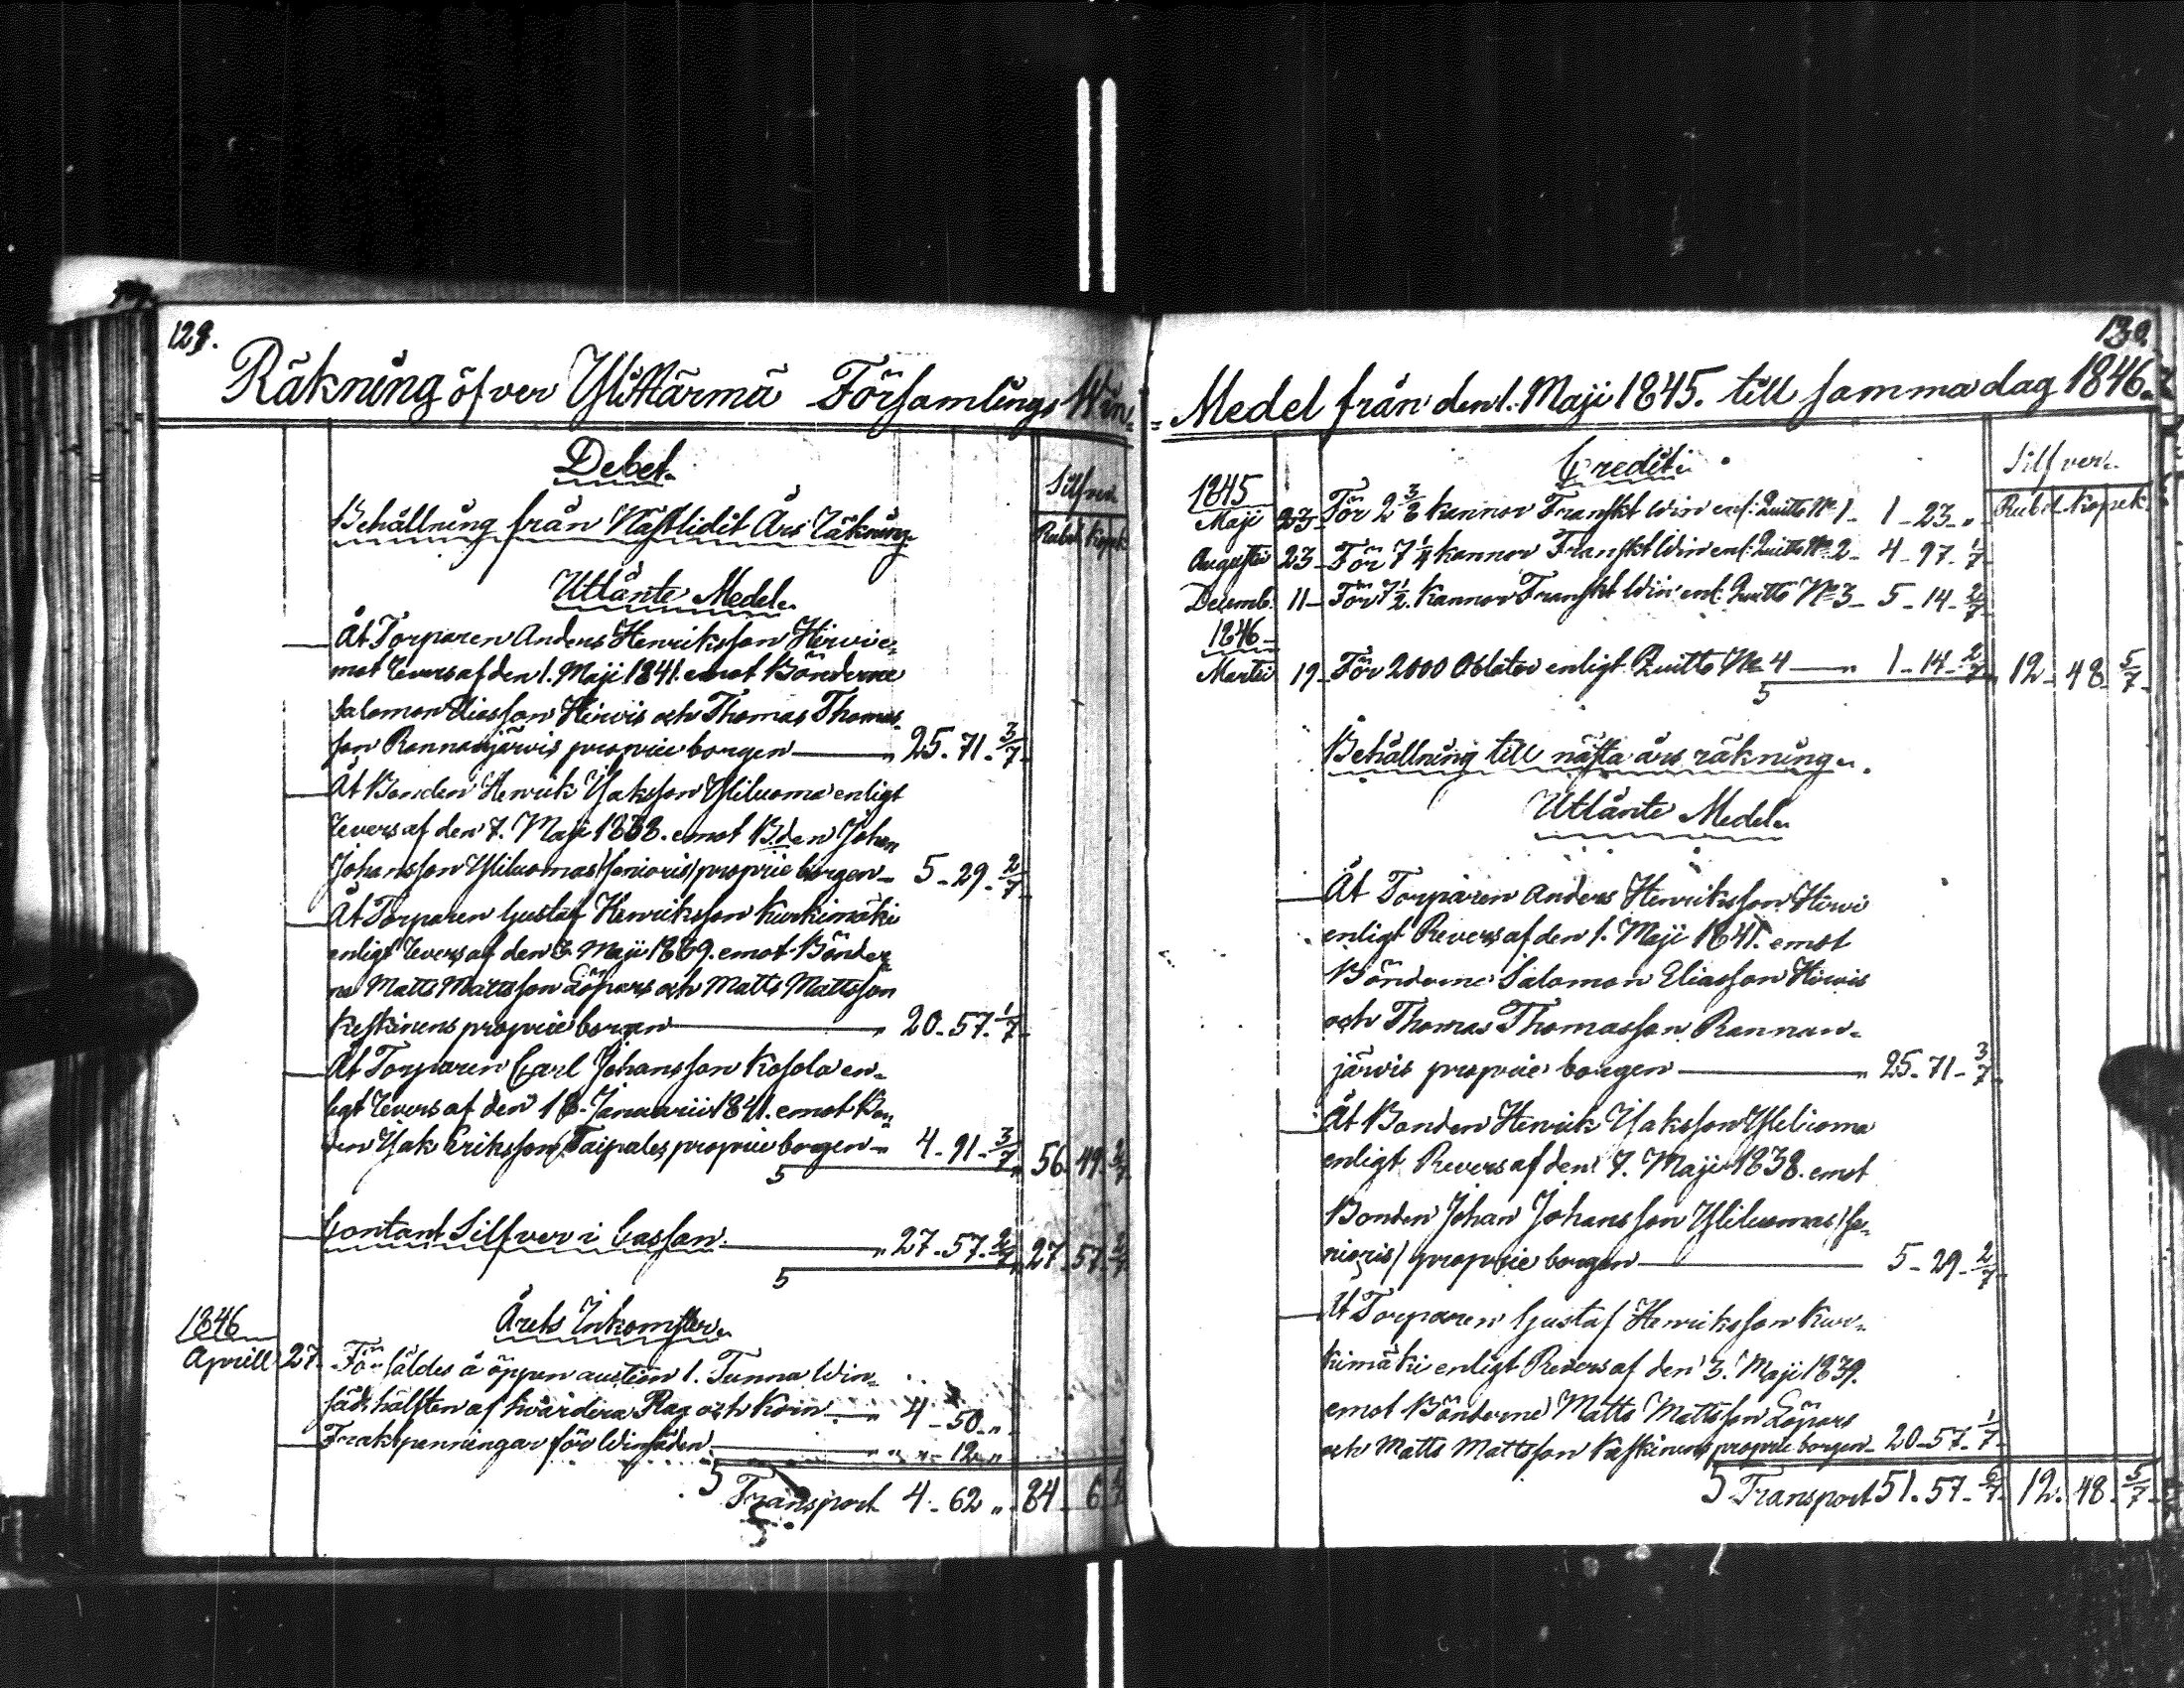 129.
Räkning öfver Ylihärmä Församlings Win-
Debet.
Silfver.
Rubel Kopek
Behållning från Nästlidit Års Räkning
Utlånte Medel.
Åt Torparen Anders Henriksson Hirvi e-
mot Revers af den 1. Maji 1841. emot Bönderne
Salomon Eliasson Hirvis och Thomas Thomas-
son Rannanjärvis proprie borgen — " 25. 71. 3/7
Åt Bonden Henrik Isaksson Yliluoma enligt
Revers af den 7. Maji 1838. emot B:den Johan
Johansson Yliluomas /senioris/ proprie borgen — 5 - 29 - 2/7
Åt Torparen Gustaf Henriksson Kurkimäki
enligt Revers af den 3. Maji 1839. emot Bönder-
ne Matts Mattsson Löpars och Matts Mattsson
Keskinens proprie borgen — " 20 - 57. 1/7
Åt Torparen Carl Johansson Kosola en-
ligt Revers af den 18. Januarii 1841. emot Bon-
den Isak Eriksson Taipales proprie borgen — " 4 - 91 - 3/7 56 49 2/7
5
Contant Silfver i Cassan. — " 27 - 57. 2/7 27 57 2/7
5
Årets Inkomster.
1846
Aprill 27. Försåldes å öppen auction 1. Tunna Win-
säd, hälften af hvardera Råg och Korn — " 4 - 50. "
Fraktpenningar för Winsäden — " " - 12 "
5 Transport 4 - 62 " 84 - 6 4/7
130.
Medel från den 1. Maji 1845. till samma dag 1846.
Credit.
Silfver.
Rubel Kopek.
1845
Maji 23 - För 2 3/8 kannor Franskt Win enl: Quitto No 1 - 1 - 23 - "
Augusti 23 - För 7 1/4 kannor Franskt Win enl: Quitto No 2 - 4 - 97 - 1/7
Decemb. 11 - För 7 1/2. Kannor Franskt Win enl: Quitto No 3 - 5 - 14 - 2/7
1846
Martii 19 - För 2000 Oblater enligt Quitto No 4 — " 1 - 14 - 2/7 12 - 48 5/7
5
Behållning till nästa års räkning.
Utlånte Medel.
Åt Torparen Anders Henriksson Hirvi
enligt Revers af den 1. Maji 1841. emot
Bönderne Salomon Eliasson Hirvis
och Thomas Thomasson Rannan-
järvis proprie borgen — " 25 - 71 - 3/7
Åt Bonden Henrik Isaksson Yliluoma
enligt Revers af den 7. Maji 1838. emot
Bonden Johan Johansson Yliluomas /se-
nioris/ proprie borgen — 5 - 29 - 2/7
Åt Torparen Gustaf Henriksson Kur-
kimäki enligt Revers af den 3. Maji 1839.
emot Bönderne Matts Mattsson Löpars
och Matts Mattsson Keskinens proprie borgen - 20 - 57 - 1/7
5 Transport 51 - 57 - 6/7 12. 48 5/7